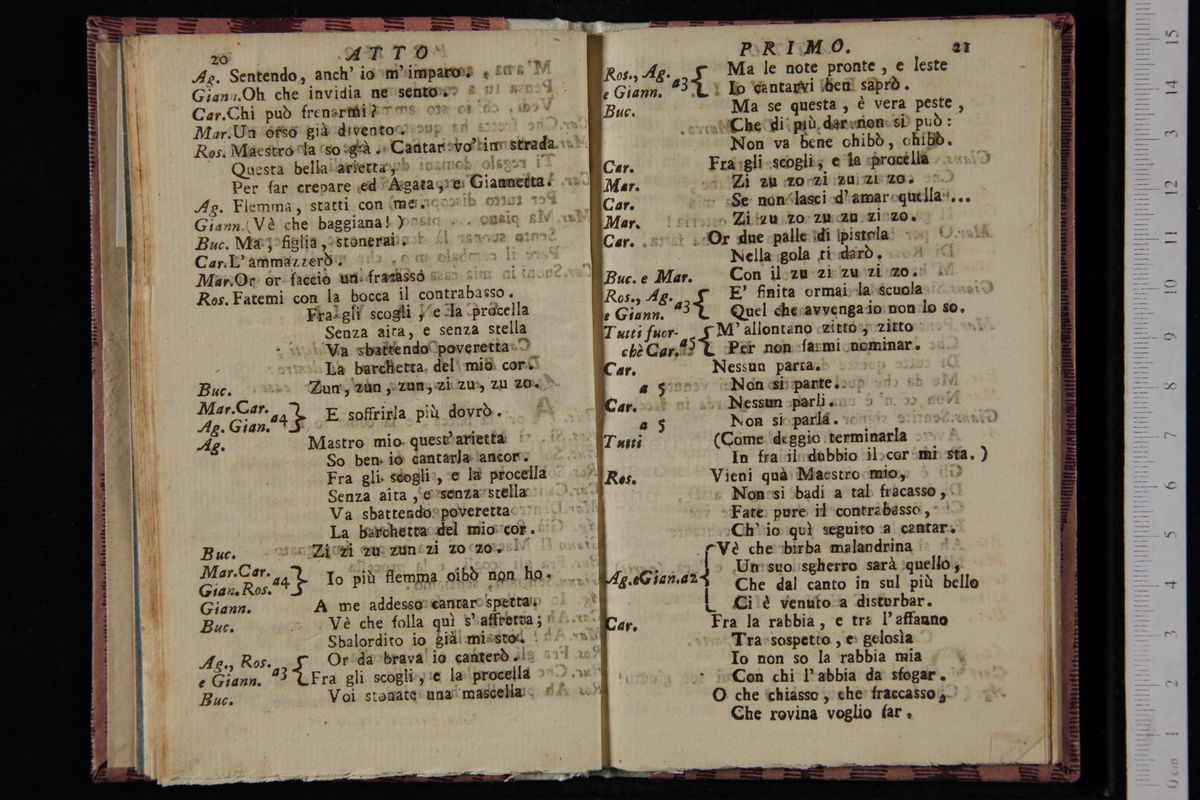 20 ATTO
Ag. Sentendo, anch' io m' imparo.
Giann. Oh che invidia ne sento.
Car. Chi può frenarmi?
Mar. Un orso già divento.
Ros. Maestro la so già. Cantar vo' in strada
Questa bella arietta,
Per far crepare ed Agata, e Giannetta.
Ag. Flemma, statti con me.
Giann. (Vè che baggiana!)
Buc. Ma, figlia, stonerai.
Car. L' ammazzerò.
Mar. Or or faccio un fracasso
Ros. Fatemi con la bocca il contrabasso.
Fra gli scogli, e la procella
Senza aita, e senza stella
Va sbattendo poveretta
La barchetta del mio cor.
Buc. Zun, zun, zun, zi zu, zu zo.
Mar. Car.
Ag. Gian. a4 } E soffrirla più dovrò.
Ag. Mastro mio quest' arietta
So ben io cantarla ancor.
Fra gli scogli, e la procella
Senza aita, e senza stella
Va sbattendo poveretta
La barchetta del mio cor.
Buc. Zi zi zu zun zi zo zo.
Mar. Car.
Gian. Ros. a4 } Io più flemma oibò non ho.
Giann. A me addesso cantar spetta.
Buc. Vè che folla quì s' affretta;
Sbalordito io già mi sto.
Ag., Ros. Or da brava io canterò.
e Giann. a3 { Fra gli scogli, e la procella
Buc. Voi stonate una mascella
PRIMO. 21
Ros., Ag. a3 { Ma le note pronte, e leste
e Giann. Io cantarvi ben saprò.
Buc. Ma se questa, è vera peste,
Che di più dar non si può:
Non va bene ohibò, ohibò.
Car. Fra gli scogli, e la procella
Mar. Zi zu zo zi zu zi zo.
Car. Se non lasci d' amar quella...
Mar. Zi zu zo zu zu zi zo.
Car. Or due palle di pistola
Nella gola ti darò.
Buc. e Mar. Con il zu zi zu zi zo.
Ros., Ag. a3 { E' finita ormai la scuola
e Giann. Quel che avvenga io non lo so.
Tutti fuor- { M' allontano zitto, zitto
chè Car. a5 Per non farmi nominar.
Car. Nessun parta.
a 5 Non si parte.
Car. Nessun parli.
a 5 Non si parla.
Tutti (Come deggio terminarla
In fra il dubbio il cor mi sta.)
Ros. Vieni quà Maestro mio,
Non si badi a tal fracasso,
Fate pure il contrabasso,
Ch' io quì seguito a cantar.
Vè che birba malandrina
Un suo sgherro sarà quello,
Ag. e Gian. a2 { Che dal canto in sul più bello
Ci è venuto a disturbar.
Car. Fra la rabbia, e tra l' affanno
Tra sospetto, e gelosìa
Io non so la rabbia mia
Con chi l' abbia da sfogar.
O che chiasso, che fraccasso,
Che rovina voglio far.